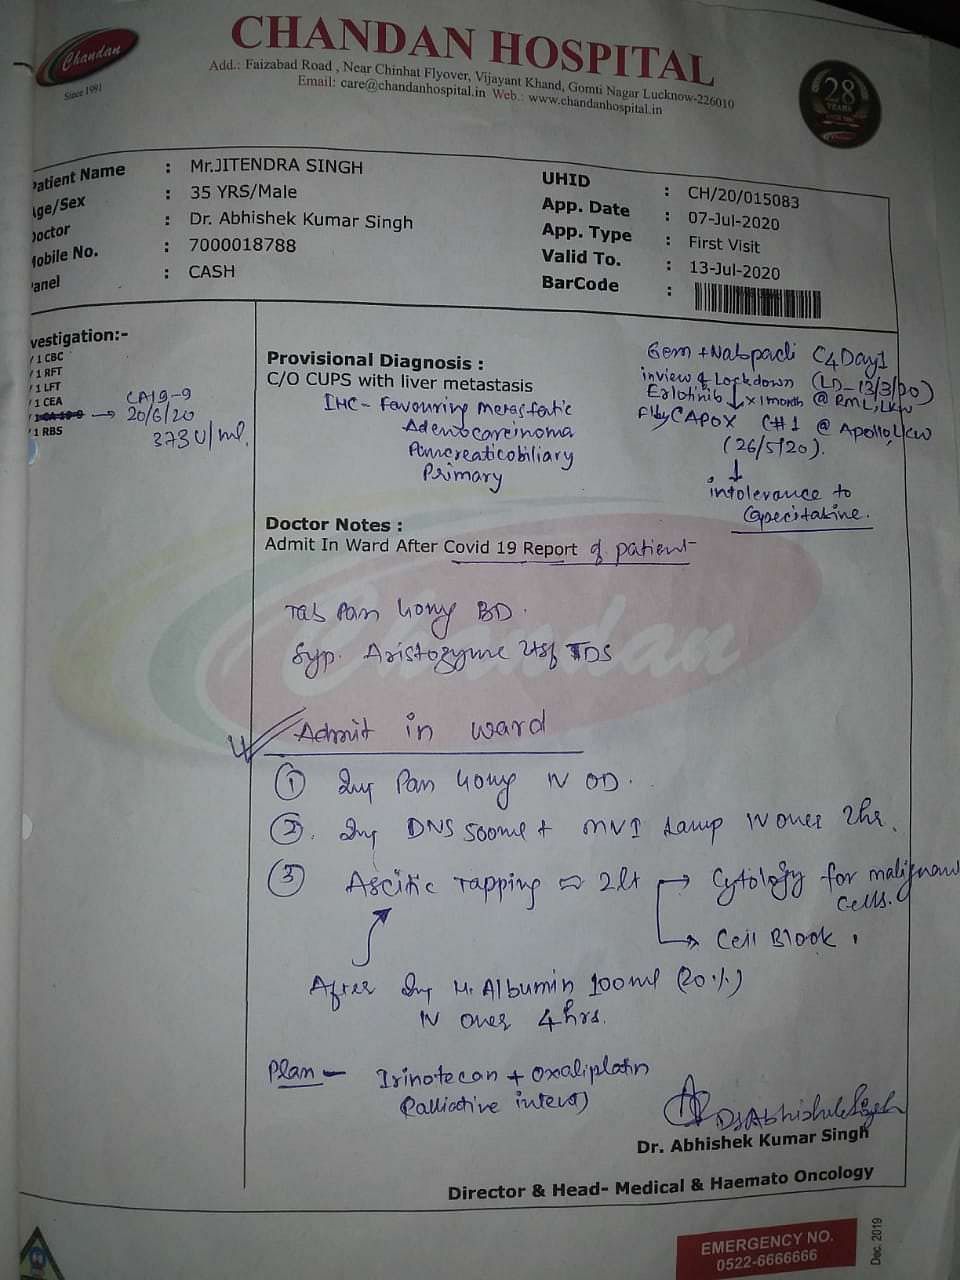 Chandan
Since 1991
CHANDAN HOSPITAL
Add.: Faizabad Road , Near Chinhat Flyover, Vijayant Khand, Gomti Nagar Lucknow-226010
Email: care@chandanhospital.in Web.: www.chandanhospital.in
28
YEARS
Patient Name : Mr.JITENDRA SINGH
Age/Sex : 35 YRS/Male
Doctor : Dr. Abhishek Kumar Singh
Mobile No. : 7000018788
Panel : CASH
UHID : CH/20/015083
App. Date : 07-Jul-2020
App. Type : First Visit
Valid To. : 13-Jul-2020
BarCode :
vestigation:-
/ 1 CBC
/ 1 RFT
/ 1 LFT
/ 1 CEA
/ 1 CA 19-9 → CA19-9
20/6/20
373 U/ml.
/ 1 RBS
Provisional Diagnosis :
C/O CUPS with liver metastasis
IHC - Favouring metastatic
Adenocarcinoma
Pancreaticobiliary
Primary
Gem + Nabpacli C4Day1
inview of Lockdown (LD-13/3/20)
Erlotinib x 1 month @ RML, LKW
f/by CAPOX C#1 @ Apollo, LKW
(26/5/20).
↓
intolerance to
Capecitabine.
Doctor Notes :
Admit In Ward After Covid 19 Report of patient
Tab Pan 40mg BD.
Syp. Aristozyme 2tsf TDS
Admit in ward
① Inj Pan 40mg IV OD.
②. Inj DNS 500ml + MVI 1amp IV over 2hr.
③ Ascitic Tapping 2lt → Cytology for malignant
cells.
→ Cell Block.
After Inj H. Albumin 100ml (20%)
IV over 4hrs.
Plan - Irinotecan + Oxaliplatin
(Palliative intent)
Dr Abhishek Singh
Dr. Abhishek Kumar Singh
Director & Head- Medical & Haemato Oncology
Chandan
EMERGENCY NO.
0522-6666666
Dec. 2019